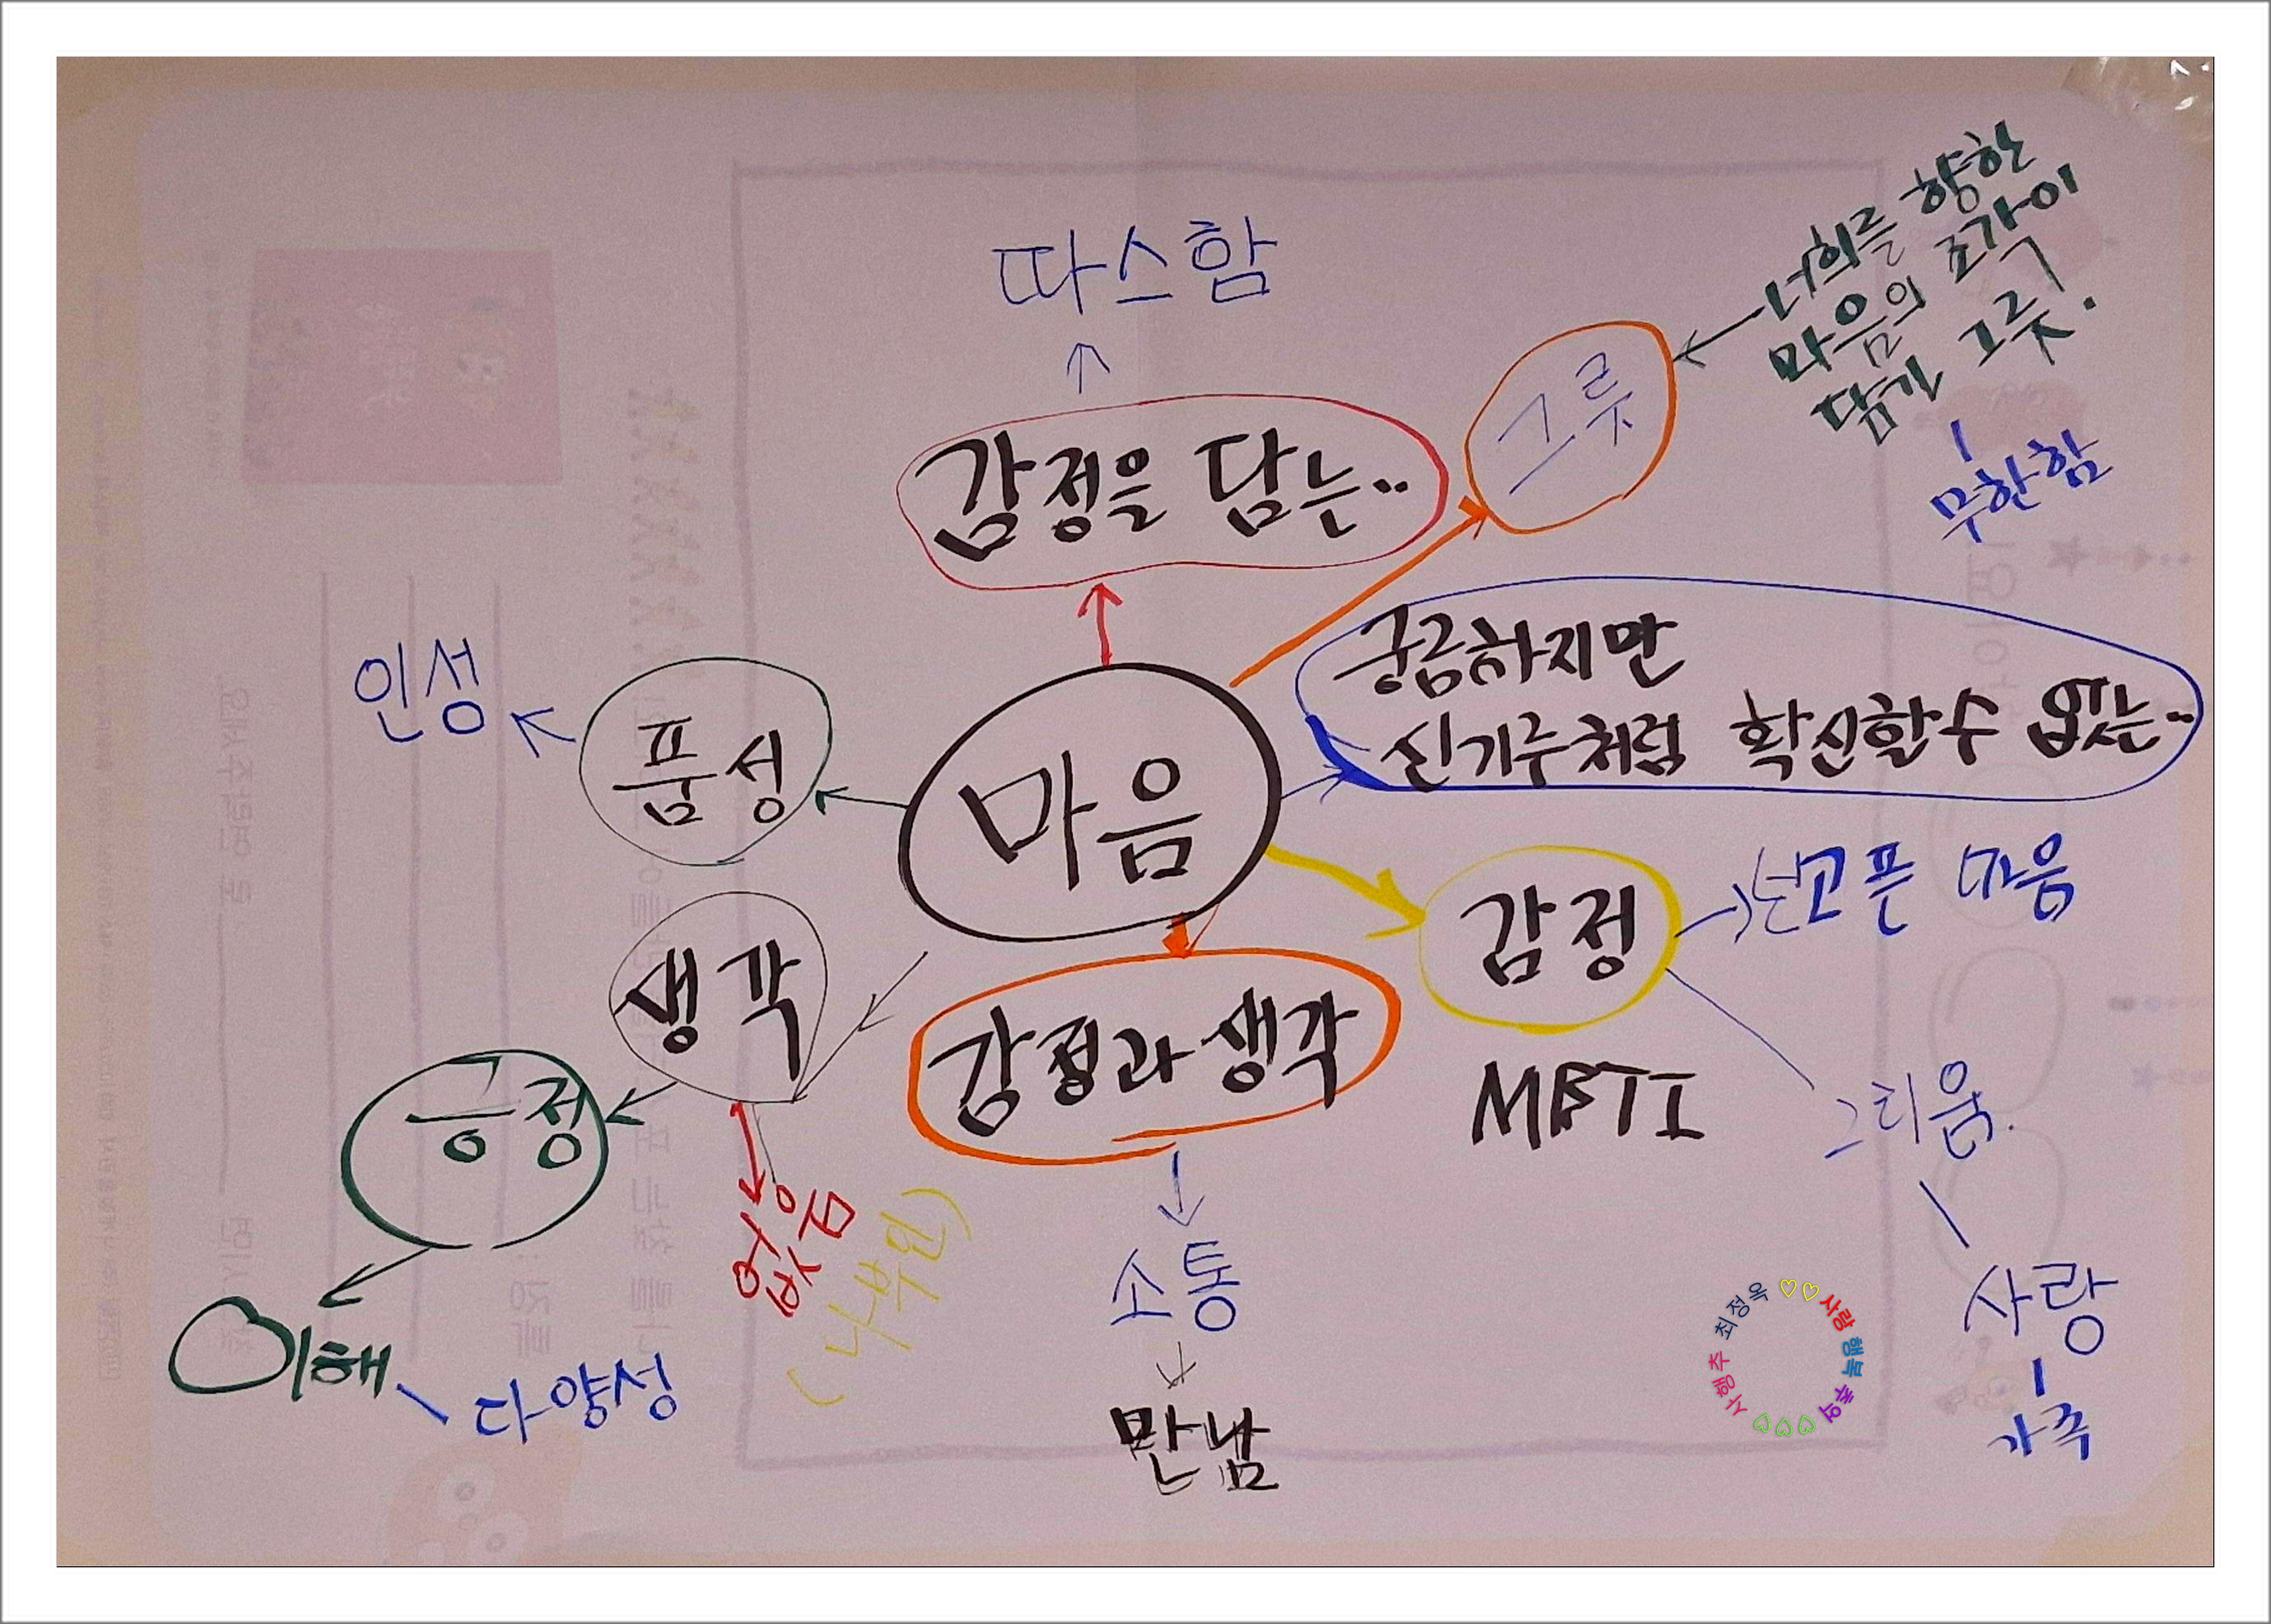 따스함
너희를 향한
마음의 조각이
담긴 그릇.
무한함
그릇
감정을 담는..
궁금하지만
신기루처럼 확신할수 없는..
인성
품성
마음
감정
생각
감정과 생각
MBTI
그리움.
긍정
없음
소통
사랑
이해
다양성
만남
가족
시행주 최정옥
사랑 행복